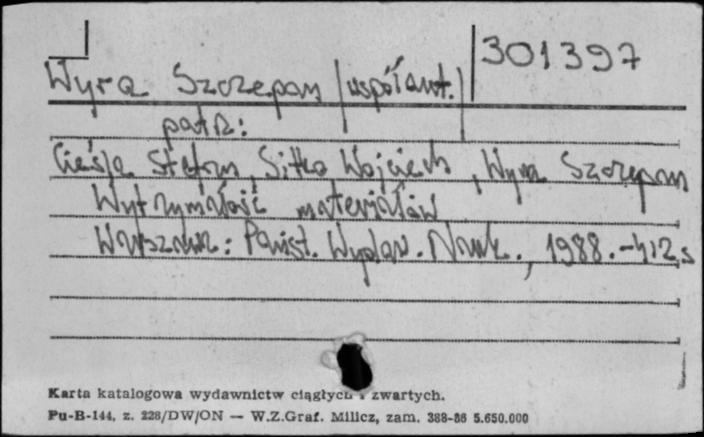 301397
Wyra Szczepan /współaut./
patrz:
Cieśla Stefan, Sitko Wojciech, Wyra Szczepan
Wytrzymałość materiałów
Warszawa: Państ. Wydaw. Nauk., 1988. - 412 s
Karta katalogowa wydawnictw ciągłych i zwartych.
Pu-B-144, z. 228/DW/ON — W.Z.Graf. Milicz, zam. 388-86 5.650.000